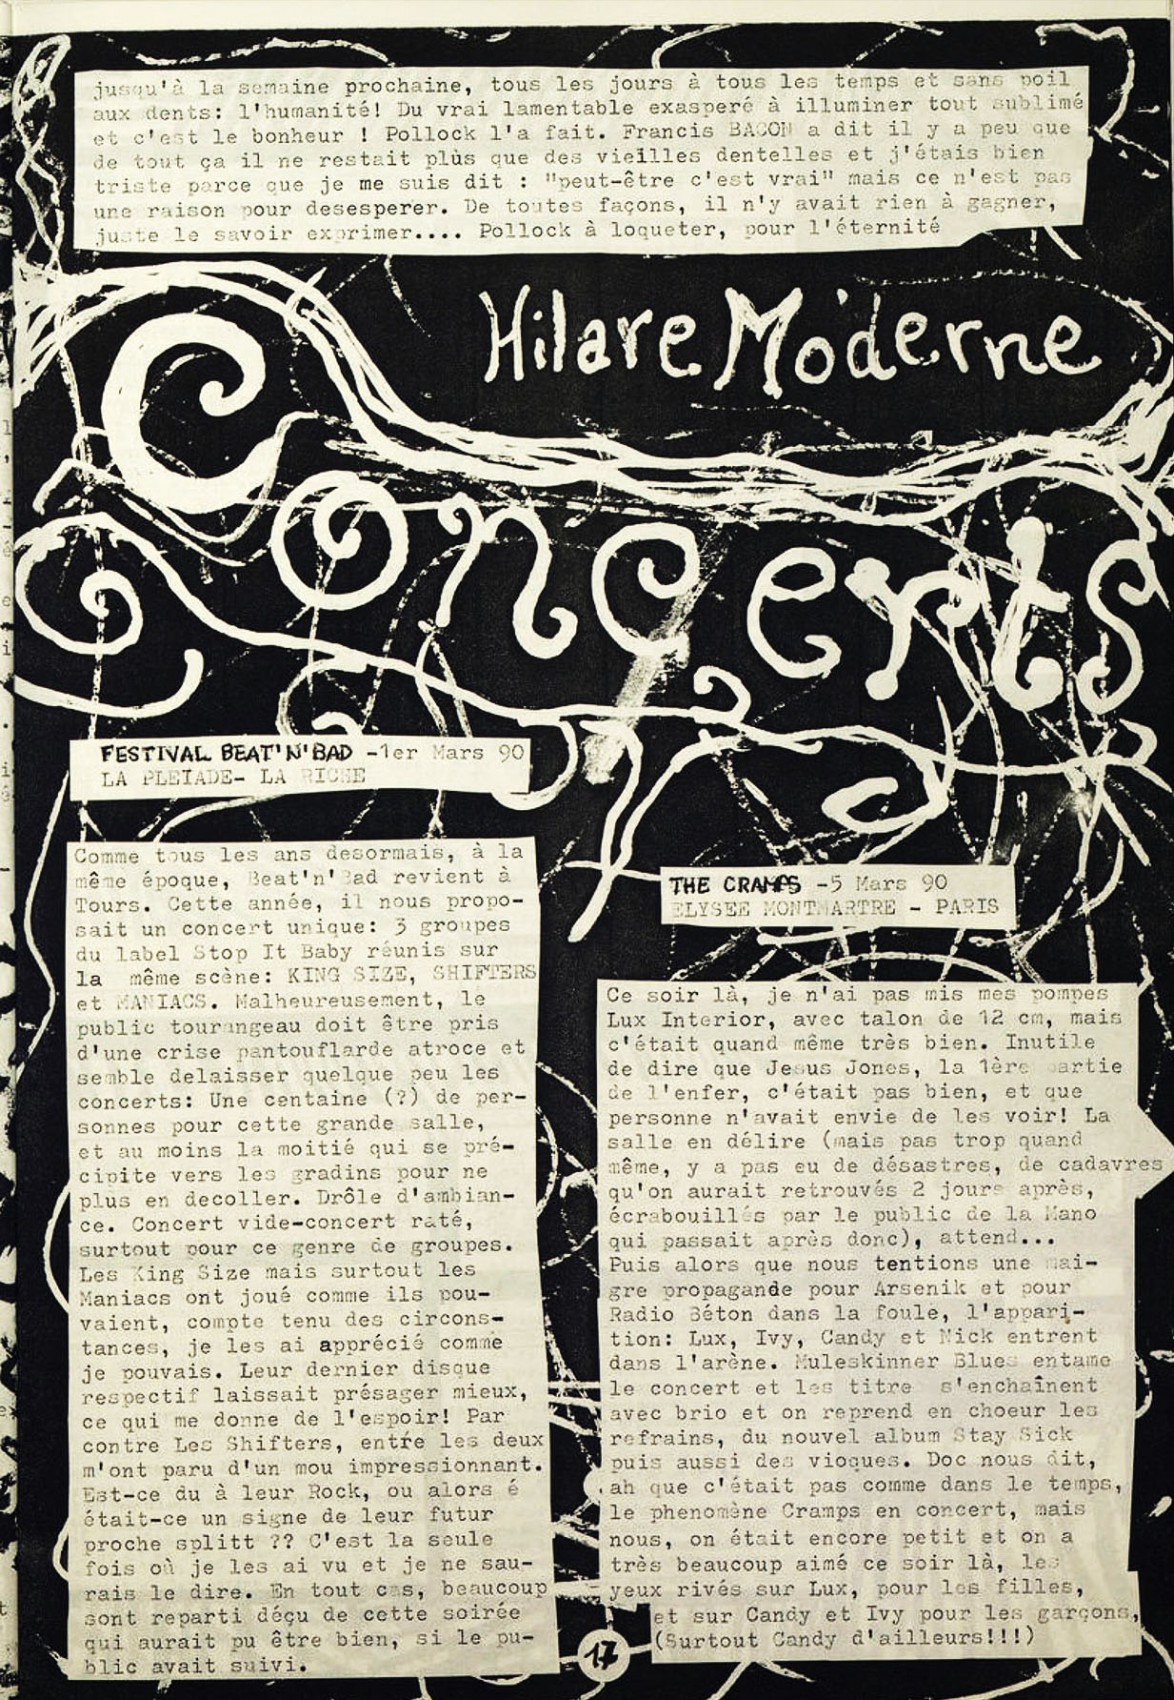 jusqu'à la semaine prochaine, tous les jours à tous les temps et sans poil
aux dents: l'humanité! Du vrai lamentable exasperé à illuminer tout sublimé
et c'est le bonheur ! Pollock l'a fait. Francis BACON a dit il y a peu que
de tout ça il ne restait plùs que des vieilles dentelles et j'étais bien
triste parce que je me suis dit : "peut-être c'est vrai" mais ce n'est pas
une raison pour desesperer. De toutes façons, il n'y avait rien à gagner,
juste le savoir exprimer.... Pollock à loqueter, pour l'éternité
Hilare Moderne
Concerts
FESTIVAL BEAT'N'BAD -1er Mars 90
LA PLEIADE- LA RICHE
Comme tous les ans desormais, à la
même époque, Beat'n'Bad revient à
Tours. Cette année, il nous propo-
sait un concert unique: 3 groupes
du label Stop It Baby réunis sur
la même scène: KING SIZE, SHIFTERS
et MANIACS. Malheureusement, le
public tourangeau doit être pris
d'une crise pantouflarde atroce et
semble delaisser quelque peu les
concerts: Une centaine (?) de per-
sonnes pour cette grande salle,
et au moins la moitié qui se pré-
cipite vers les gradins pour ne
plus en decoller. Drôle d'ambian-
ce. Concert vide-concert raté,
surtout pour ce genre de groupes.
Les King Size mais surtout les
Maniacs ont joué comme ils pou-
vaient, compte tenu des circons-
tances, je les ai apprécié comme
je pouvais. Leur dernier disque
respectif laissait présager mieux,
ce qui me donne de l'espoir! Par
contre Les Shifters, entre les deux
m'ont paru d'un mou impressionnant.
Est-ce du à leur Rock, ou alors é
était-ce un signe de leur futur
proche splitt ?? C'est la seule
fois où je les ai vu et je ne sau-
rais le dire. En tout cas, beaucoup
sont reparti déçu de cette soirée
qui aurait pu être bien, si le pu-
blic avait suivi.
THE CRAMPS -5 Mars 90
ELYSEE MONTMARTRE - PARIS
Ce soir là, je n'ai pas mis mes pompes
Lux Interior, avec talon de 12 cm, mais
c'était quand même très bien. Inutile
de dire que Jesus Jones, la 1ère partie
de l'enfer, c'était pas bien, et que
personne n'avait envie de les voir! La
salle en délire (mais pas trop quand
même, y a pas eu de désastres, de cadavres
qu'on aurait retrouvés 2 jours après,
écrabouillés par le public de la Mano
qui passait après donc), attend...
Puis alors que nous tentions une mai-
gre propagande pour Arsenik et pour
Radio Béton dans la foule, l'appari-
tion: Lux, Ivy, Candy et Nick entrent
dans l'arène. Muleskinner Blues entame
le concert et les titre s'enchaînent
avec brio et on reprend en choeur les
refrains, du nouvel album Stay Sick
puis aussi des vioques. Doc nous dit,
ah que c'était pas comme dans le temps,
le phenomène Cramps en concert, mais
nous, on était encore petit et on a
très beaucoup aimé ce soir là, les
yeux rivés sur Lux, pour les filles,
et sur Candy et Ivy pour les garçons,
(Surtout Candy d'ailleurs!!!)
17